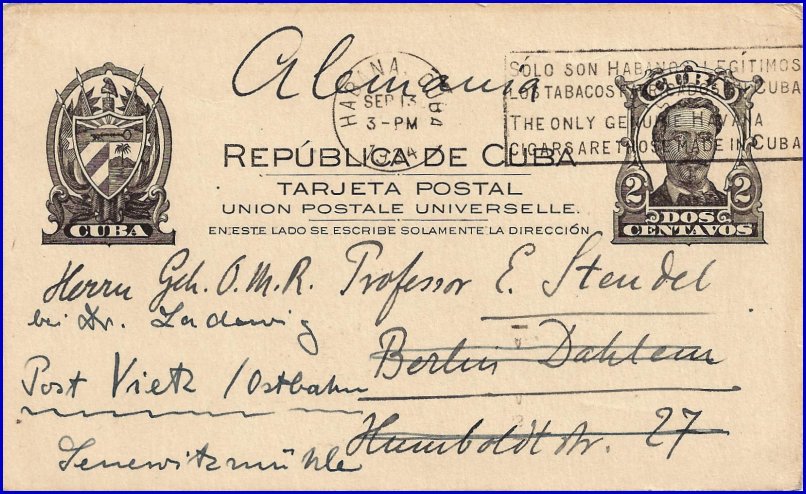 Alemania
HABANA, CUBA
SEP 13
3-PM
1924
SOLO SON HABANOS LEGITIMOS
LOS TABACOS EN CUBA
THE ONLY GENUINE HAVANA
CIGARS ARE THOSE MADE IN CUBA
CUBA
REPÚBLICA DE CUBA
TARJETA POSTAL
UNION POSTALE UNIVERSELLE.
EN ESTE LADO SE ESCRIBE SOLAMENTE LA DIRECCIÓN
CUBA
2 2
DOS
CENTAVOS
Herrn Geh. O.M.R. Professor E. Stendel
bei Dr. Ladewig
Berlin Dahlem
Post Vietz / Ostbahn
Humboldtstr. 27